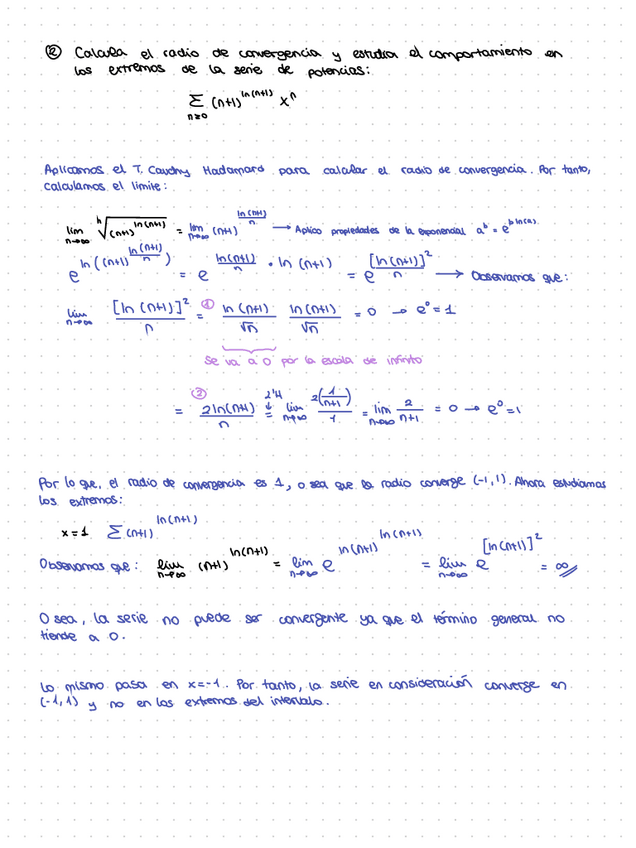 ⑫ Calcula el radio de convergencia y estudia el comportamiento en
los extremos de la serie de potencias:
∑_{n≥0} (n+1)^{ln(n+1)} x^n
Aplicamos el T. Cauchy Hadamard para calcular el radio de convergencia. Por tanto,
calculamos el límite:
lim_{n→∞} ⁿ√((n+1)^{ln(n+1)}) = lim_{n→∞} (n+1)^{ln(n+1)/n} → Aplico propiedades de la exponencial a^b = e^{b ln(a)}
e^{ln((n+1)^{ln(n+1)/n})} = e^{ln(n+1)/n · ln(n+1)} = e^{[ln(n+1)]²/n} → Observamos que:
lim_{n→∞} [ln(n+1)]²/n =① ln(n+1)/√n ln(n+1)/√n = 0 → e^0 = 1
se va a 0 por la escala de infinito
=② 2ln(n+1)/n =^{L'H} lim_{n→∞} 2(1/(n+1))/1 = lim_{n→∞} 2/(n+1) = 0 → e^0 = 1
Por lo que, el radio de convergencia es 1, o sea que la radio converge (-1,1). Ahora estudiamos
los extremos:
x=1 ∑(n+1)^{ln(n+1)}
Observamos que: lim_{n→∞} (n+1)^{ln(n+1)} = lim_{n→∞} e^{ln(n+1)^{ln(n+1)}} = lim_{n→∞} e^{[ln(n+1)]²} = ∞
O sea, la serie no puede ser convergente ya que el término general no
tiende a 0.
Lo mismo pasa en x=-1. Por tanto, la serie en consideración converge en
(-1,1) y no en los extremos del intervalo.